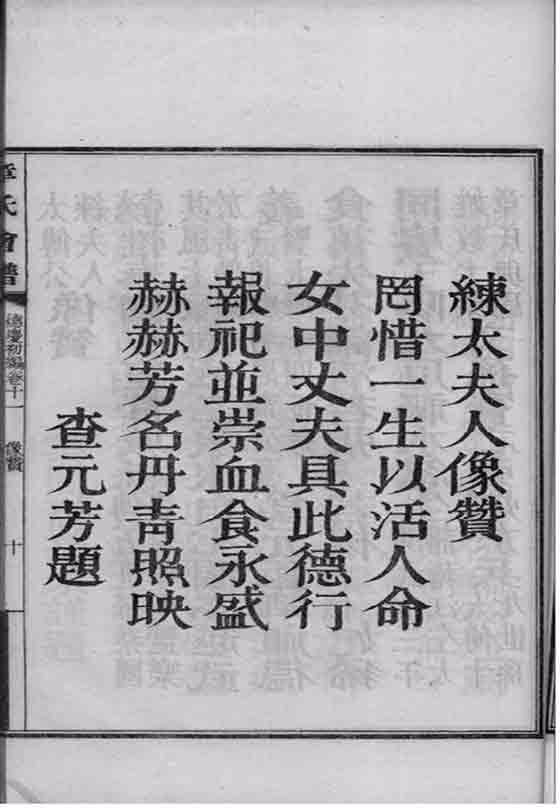 練太夫人像贊
罔惜一生以活人命
女中丈夫具此德行
報祀並崇血食永盛
赫赫芳名丹靑照映
查元芳題
章氏會譜
德慶初編卷十一
像贊
十